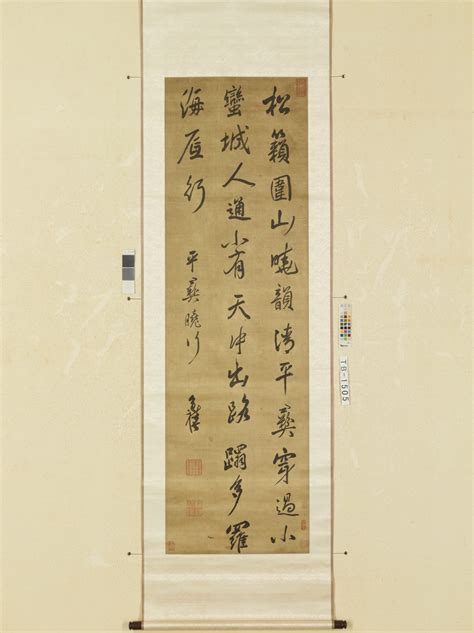 松籟圍山曉韻清平彝穿過小
蠻城人通小有天中出路躡多羅
海屋行
平彝曉行
TB-1505